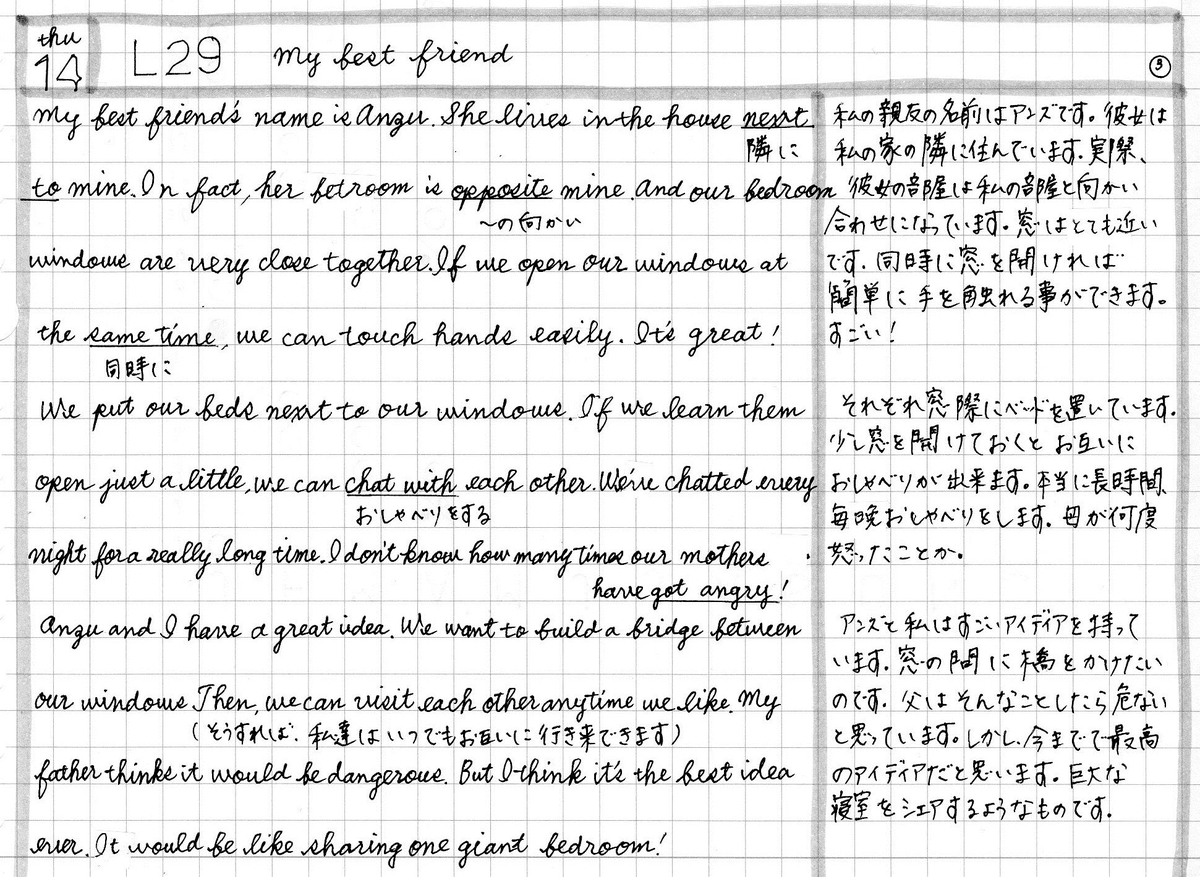 thu
14 L29 My best friend
③
My best friend's name is Anzu. She lives in the house next
隣に
to mine. In fact, her betroom is opposite mine. And our bedroom
〜の向かい
windows are very close together. If we open our windows at
the same time, we can touch hands easily. It's great!
同時に
We put our beds next to our windows. If we learn them
open just a little, we can chat with each other. We've chatted every
おしゃべりをする
night for a really long time. I don't know how many times our mothers
have got angry!
Anzu and I have a great idea. We want to build a bridge between
our windows. Then, we can visit each other anytime we like. My
(そうすれば、私達はいつでもお互いに行き来できます)
father thinks it would be dangerous. But I think it's the best idea
ever. It would be like sharing one giant bedroom!
私の親友の名前はアンズです。彼女は
私の家の隣に住んでいます。実際、
彼女の部屋は私の部屋と向かい
合わせになっています。窓はとても近い
です。同時に窓を開ければ
簡単に手を触れる事ができます。
すごい!
それぞれ窓際にベッドを置いています。
少し窓を開けておくとお互いに
おしゃべりが出来ます。本当に長時間、
毎晩おしゃべりをします。母が何度
怒ったことか。
アンズと私はすごいアイディアを持って
います。窓の間に橋をかけたい
のです。父はそんなことしたら危ない
と思っています。しかし、今までで最高
のアイディアだと思います。巨大な
寝室をシェアするようなものです。